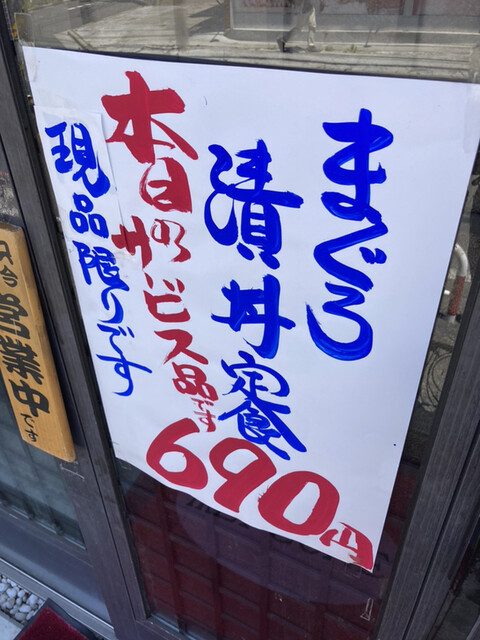 まぐろ
漬丼定食
本日のサービス品です
690円
現品限りです
只今営業中です